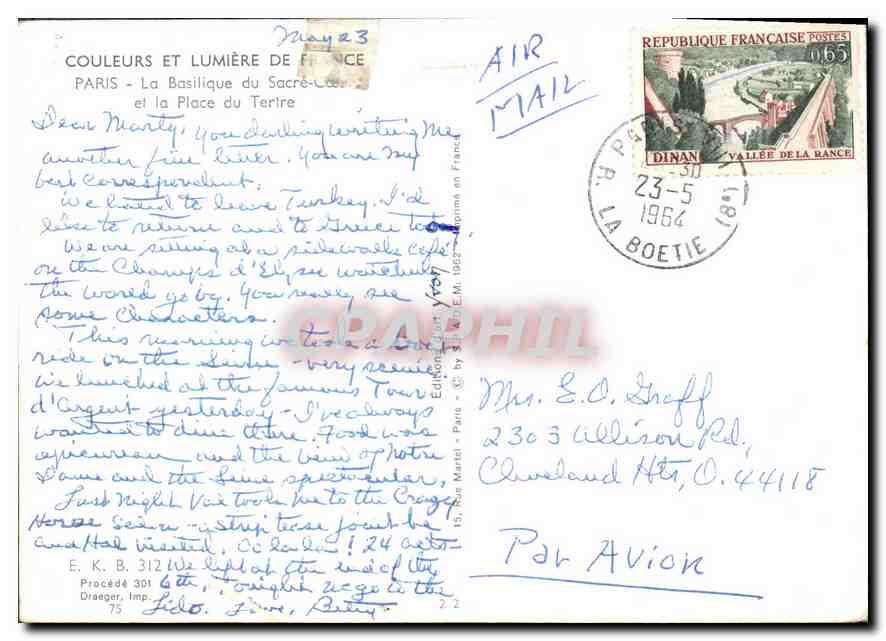 May 23
COULEURS ET LUMIÈRE DE FRANCE
PARIS - La Basilique du Sacré-Cœur
et la Place du Tertre
Dear Marty, you darling writing me
another fine letter. You are my
best correspondent.
We hated to leave Turkey. I'd
like to return and to Greece too.
We are sitting at a sidewalk café
on the Champs d'Elysee watching
the world go by. You really see
some characters.
This morning we took a boat
ride on the Seine - very scenic.
We lunched at the famous Tour
d'Argent yesterday - I've always
wanted to dine there. Food was
epicurean and the view of Notre
Dame and the Seine spectacular.
Last night Vae took me to the Crazy
Horse Saloon - a strip tease joint he
and Hal visited. Oo la la! 24 acts -
We left at the end of the
6th. Tonight we go to the
Lido. Love, Betty
E. K. B. 312
Procédé 301
Draeger, Imp.
75
2.2
Editions d'art YVON
15, Rue Martel - Paris - © by S.P.A.D.E.M. 1962 - Imprimé en France
CPAPHIL
AIR
MAIL
REPUBLIQUE FRANÇAISE POSTES
0,65
DINAN VALLÉE DE LA RANCE
30
23-5
1964
R. LA BOETIE (8e)
Mrs. E. O. Graff
2303 Allison Rd.,
Cleveland Hts, O. 44118
Par Avion